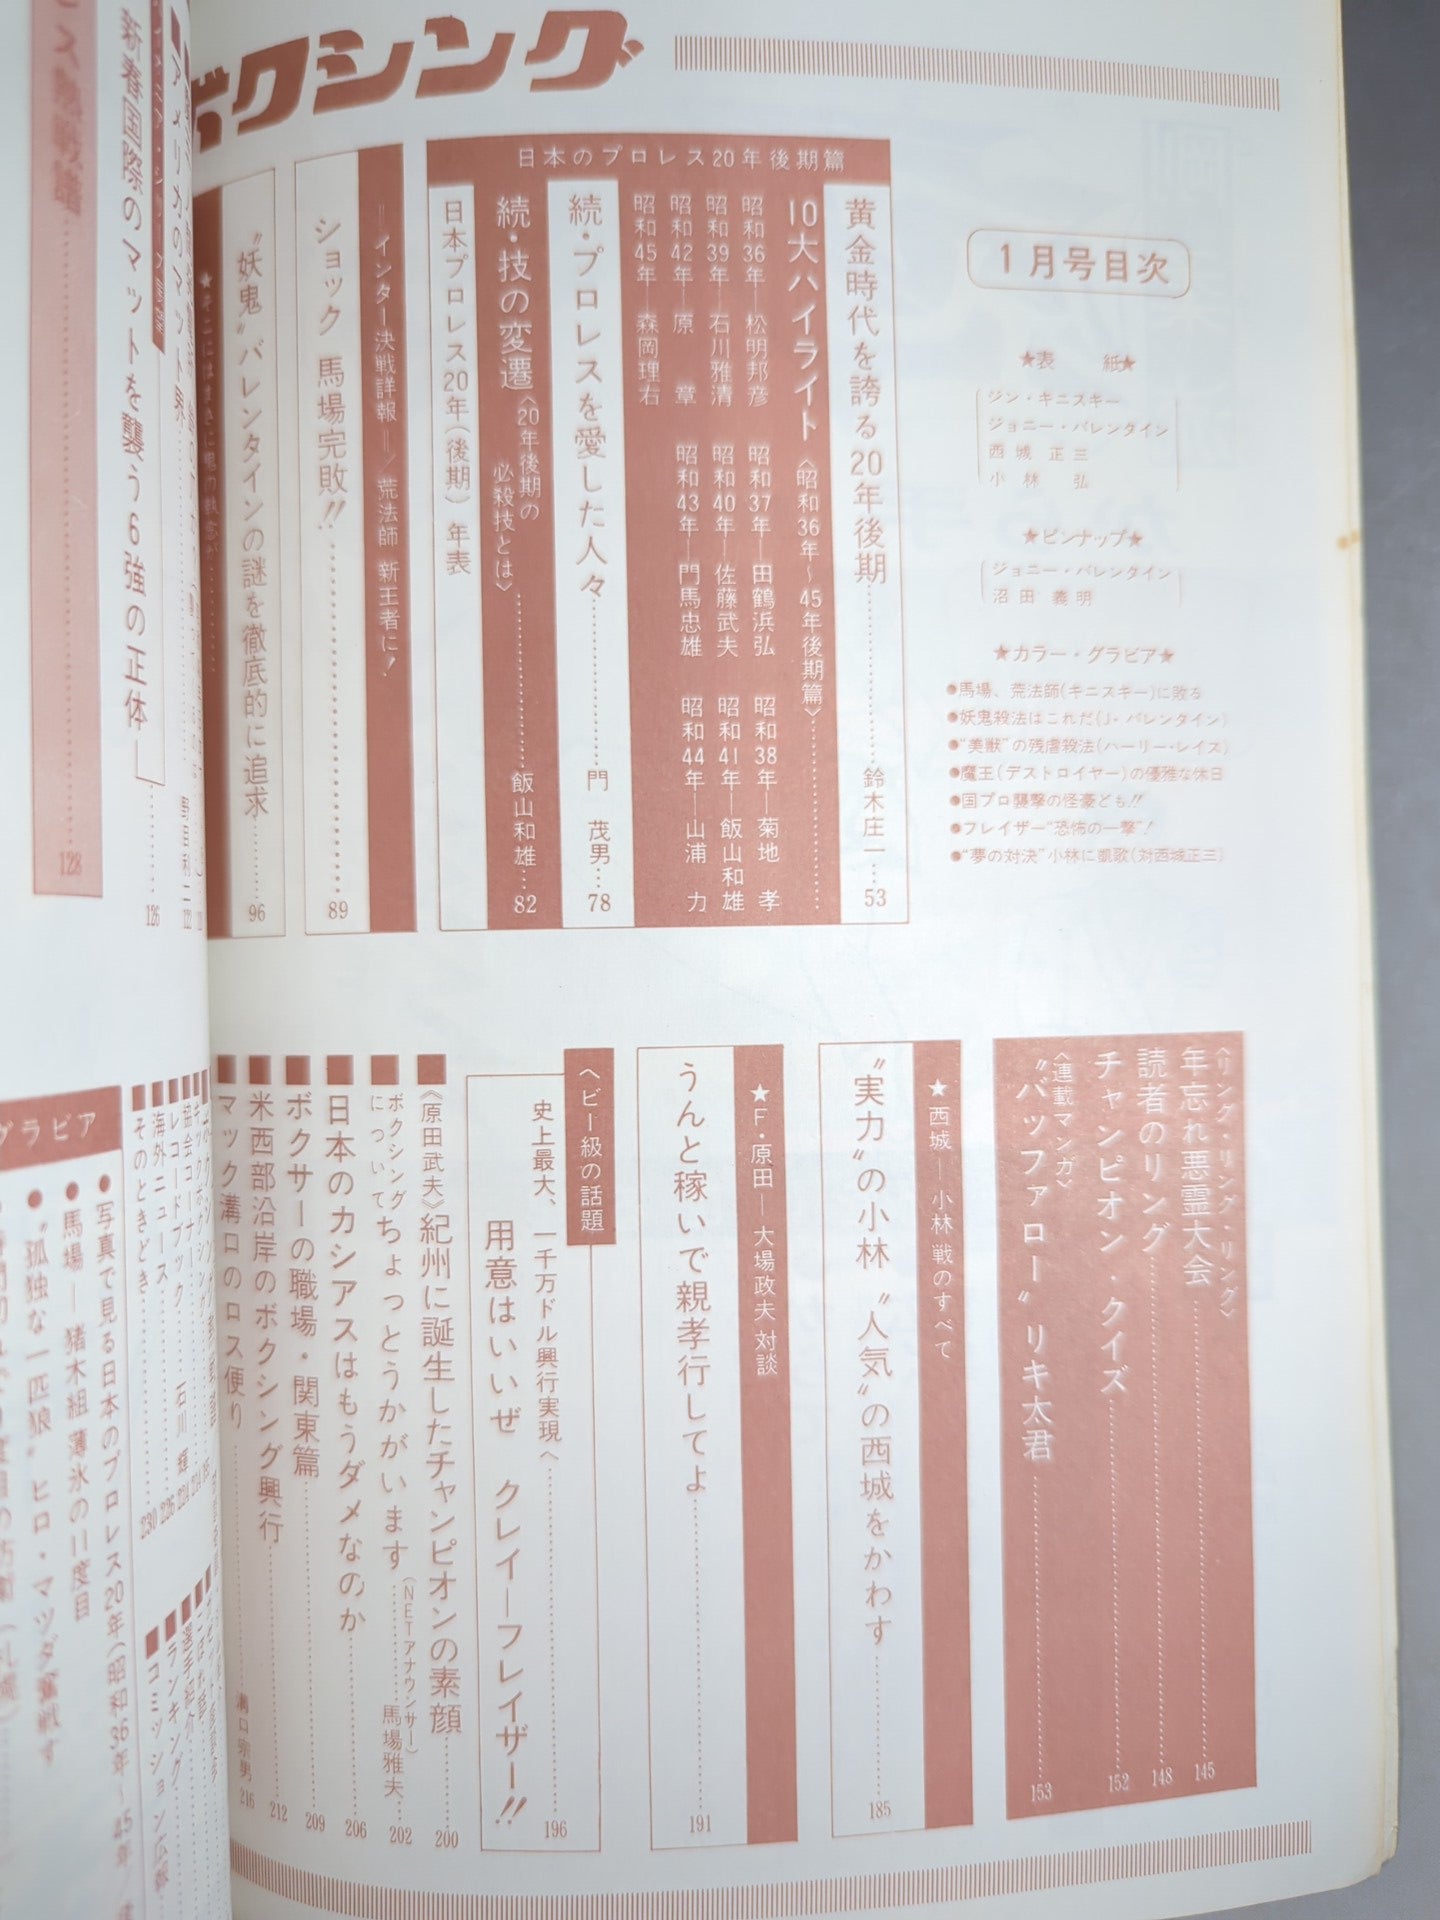 ボクシング
1月号目次
★表 紙★
ジン・キニスキー
ジョニー・バレンタイン
西城 正三
小林 弘
★ピンナップ★
ジョニー・バレンタイン
沼田 義明
★カラー・グラビア★
●馬場、荒法師(キニスキー)に敗る
●妖鬼殺法はこれだ(J・バレンタイン)
●“美獣”の残虐殺法(ハーリー・レイス)
●魔王(デストロイヤー)の優雅な休日
●国プロ襲撃の怪豪ども!!
●フレイザー“恐怖の一撃”!
●“夢の対決”小林に凱歌(対西城正三)
日本のプロレス20年後期篇
黄金時代を誇る20年後期……鈴木庄一…53
10大ハイライト〈昭和36年～45年後期篇〉……
昭和36年―松明邦彦 昭和37年―田鶴浜弘 昭和38年―菊地 孝
昭和39年―石川雅清 昭和40年―佐藤武夫 昭和41年―飯山和雄
昭和42年―原 章 昭和43年―門馬忠雄 昭和44年―山浦 力
昭和45年―森岡理右
続・プロレスを愛した人々……門 茂男…78
続・技の変遷〈20年後期の必殺技とは〉……飯山和雄…82
日本プロレス20年(後期)年表
=インター決戦詳報=／荒法師 新王者に!
ショック 馬場完敗!!……89
“妖鬼”バレンタインの謎を徹底的に追求……96
★そこにはまさに鬼の執念が……
アメリカのマット界
新春国際のマットを襲う6強の正体―……126
128
〈リング・リング・リング〉
年忘れ悪霊大会……145
読者のリング……148
チャンピオン・クイズ……152
〈連載マンガ〉
“バッファロー”リキ太君……153
★西城―小林戦のすべて
“実力”の小林 “人気”の西城をかわす……185
★F・原田―大場政夫 対談
うんと稼いで親孝行してよ……191
ヘビー級の話題
史上最大、一千万ドル興行実現へ…196
用意はいいぜ クレイ―フレイザー!!
■《原田武夫》紀州に誕生したチャンピオンの素顔……200
■ボクシングについてちょっとうかがいます(NETアナウンサー)……馬場雅夫…202
■日本のカシアスはもうダメなのか……206
■ボクサーの職場・関東篇……209
■米西部沿岸のボクシング興行……212
■マック溝口のロス便り……溝口宗男 216
■協会コーナー
■レコードブック……石川 輝 224
■海外ニュース……226
■そのときどき……230
■選手紹介
■ランキング
■コミッション広報
グラビア
●写真で見る日本のプロレス20年(昭和36年～45年
●馬場―猪木組 薄氷の11度目
●“孤独な一匹狼”ヒロ・マツダ奮戦す